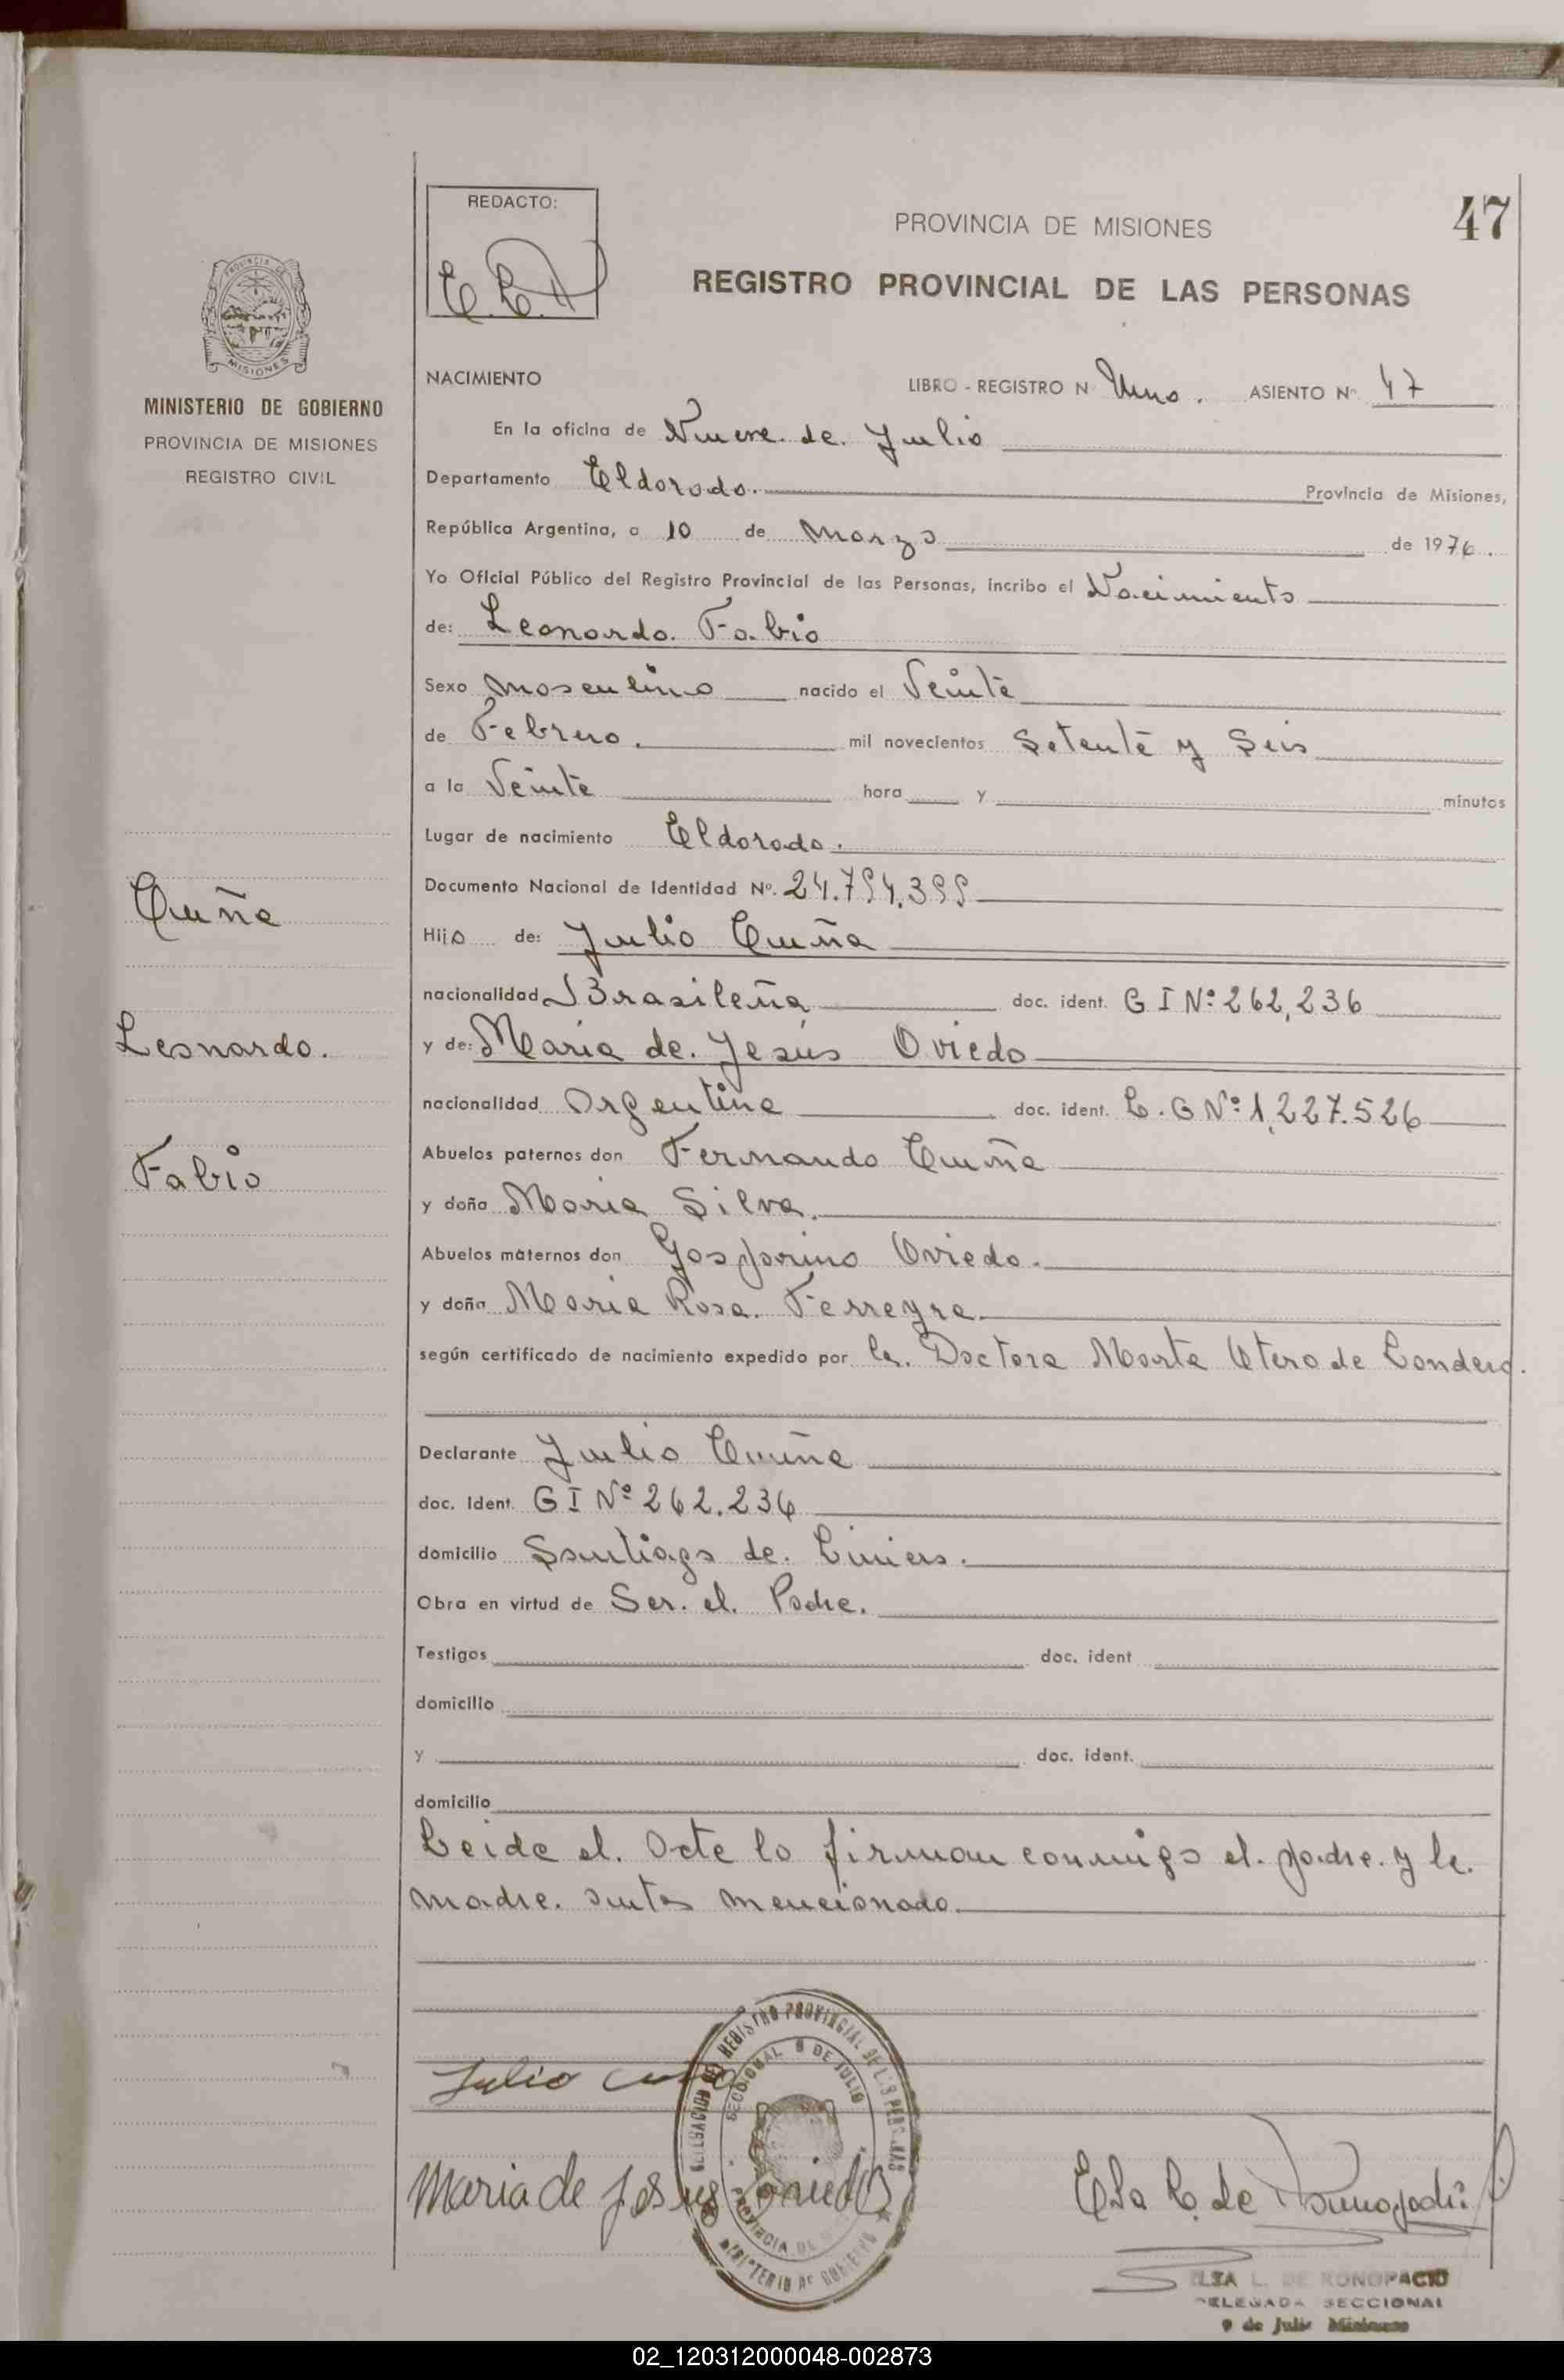 REDACTO:
PROVINCIA DE MISIONES
47
REGISTRO PROVINCIAL DE LAS PERSONAS
MISIONES
MINISTERIO DE GOBIERNO
PROVINCIA DE MISIONES
REGISTRO CIVIL
NACIMIENTO LIBRO - REGISTRO N Uno. ASIENTO Nº 47
En la oficina de Nueve de Julio
Departamento Eldorado. Provincia de Misiones,
República Argentina, a 10 de Marzo de 1976.
Yo Oficial Público del Registro Provincial de las Personas, incribo el Nacimiento
de: Leonardo Fabio
Sexo Masculino nacido el Veinte
de Febrero. mil novecientos Setenta y Seis
a la Veinte hora y minutos
Lugar de nacimiento Eldorado.
Documento Nacional de Identidad Nº. 24.794.399
Cuña
Hijo de: Julio Cuña
nacionalidad Brasileña doc. ident. C I Nº 262,236
Leonardo.
y de: Maria de Jesús Oviedo
nacionalidad Argentina doc. ident. L. C Nº 1,227.526
Abuelos paternos don Fernando Cuña
Fabio
y doña Maria Silva.
Abuelos maternos don Gasparino Oviedo.
y doña Maria Rosa Ferreyra.
según certificado de nacimiento expedido por la Doctora Marta Otero de
Declarante Julio Cuña
doc. Ident. C I Nº 262.236
domicilio Santiago de Liniers.
Obra en virtud de Ser el Padre.
Testigos doc. ident
domicilio
y doc. ident.
domicilio
Leida el Acta lo firman conmigo el padre y la
madre antes mencionado.
DELEGACION DEL REGISTRO PROVINCIAL DE LAS PERSONAS
SECCIONAL 9 DE JULIO
PROVINCIA DE
MINISTERIO DE GOBIERNO
Julio
Maria de Jesus Oviedo
Elsa L. de
ELSA L. DE KONOPACKI
DELEGADA SECCIONAL
9 de Julio Misiones
02_120312000048-002873